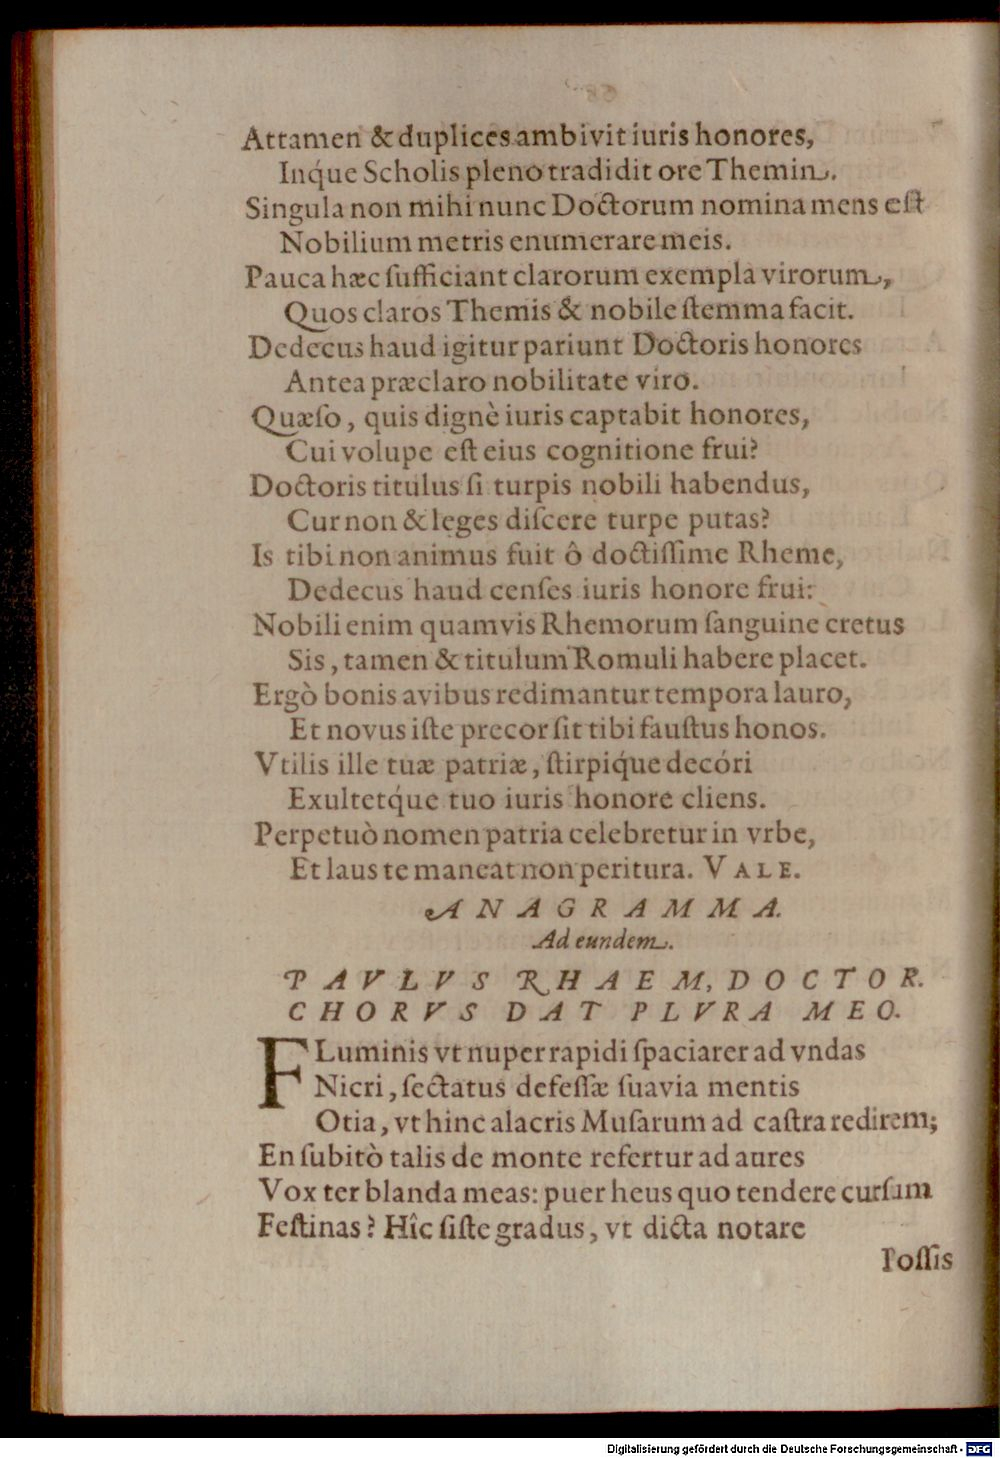 Attamen & duplices ambivit iuris honores,
Inq́ue Scholis pleno tradidit ore Themin.
Singula non mihi nunc Doctorum nomina mens eſt
Nobilium metris enumerare meis.
Pauca hæc ſufficiant clarorum exempla virorum,
Quos claros Themis & nobile ſtemma facit.
Dedecus haud igitur pariunt Doctoris honores
Antea præclaro nobilitate viro.
Quæſo, quis dignè iuris captabit honores,
Cui volupe eſt eius cognitione frui?
Doctoris titulus ſi turpis nobili habendus,
Cur non & leges diſcere turpe putas?
Is tibi non animus fuit ô doctiſſime Rheme,
Dedecus haud cenſes iuris honore frui:
Nobili enim quamvis Rhemorum ſanguine cretus
Sis, tamen & titulum Romuli habere placet.
Ergò bonis avibus redimantur tempora lauro,
Et novus iſte precor ſit tibi fauſtus honos.
Vtilis ille tuæ patriæ, ſtirpiq́ue decóri
Exultetq́ue tuo iuris honore cliens.
Perpetuò nomen patria celebretur in vrbe,
Et laus te maneat non peritura. VALE.
ANAGRAMMA.
Ad eundem.
PAVLVS RHAEM, DOCTOR.
CHORVS DAT PLVRA MEO.
FLuminis vt nuper rapidi ſpaciarer ad vndas
Nicri, ſectatus defeſſæ ſuavia mentis
Otia, vt hinc alacris Muſarum ad caſtra redirem;
En ſubitò talis de monte refertur ad aures
Vox ter blanda meas: puer heus quo tendere curſum
Feſtinas? Hîc ſiſte gradus, vt dicta notare
Poſſis
Digitalisierung gefördert durch die Deutsche Forschungsgemeinschaft - DFG